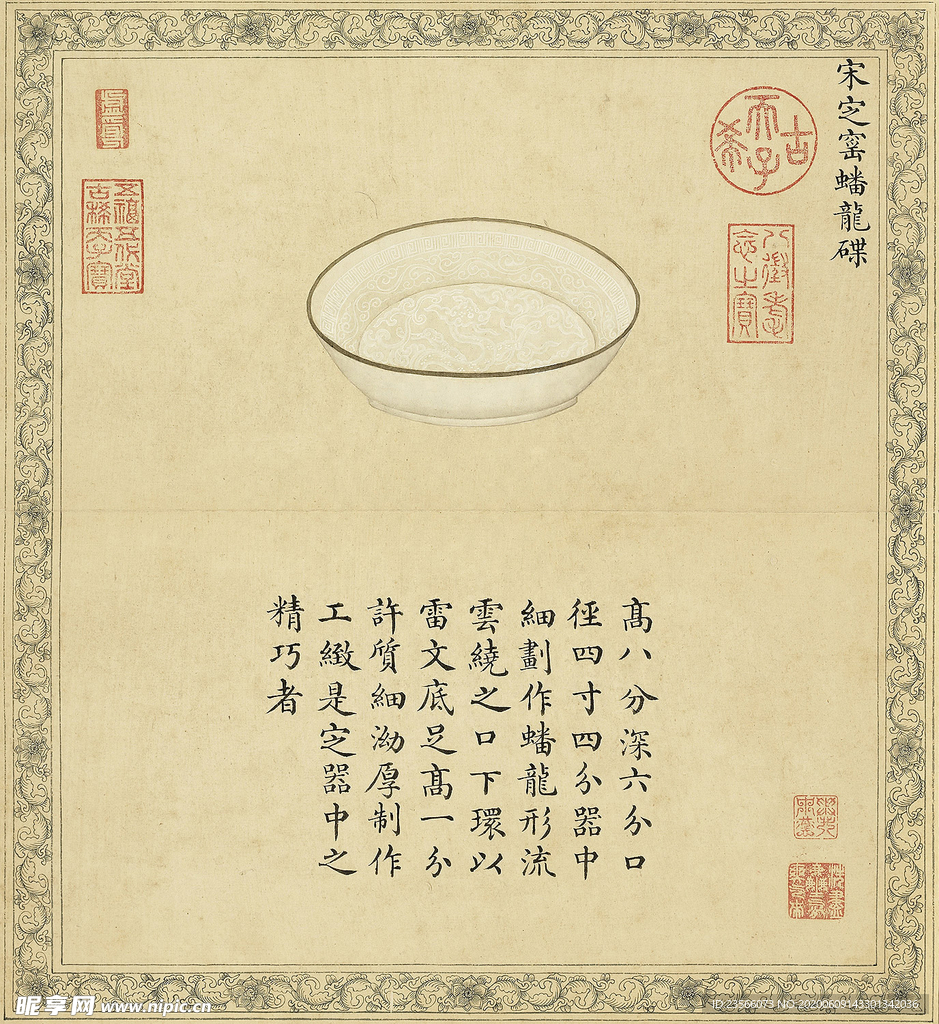 宋㝎窰蟠龍碟
古希天子
八徵耄念之寶
髙八分深六分口
徑四寸四分器中
細劃作蟠龍形流
雲繞之口下環以
雷文底足髙一分
許質細泑厚制作
工緻是㝎器中之
精巧者
五福五代堂古稀天子寶
昵享网 www.nipic.cn
ID:23566073 NO:20200609143301342036